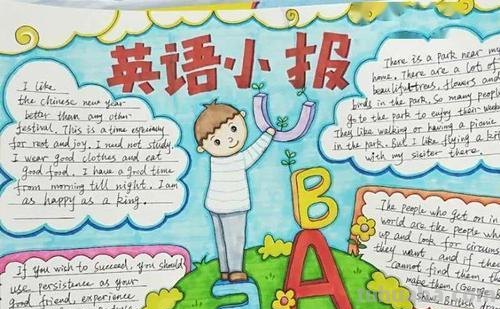 英语小报
I like
the chinese new year
better than any other
festival. This is a time especially
for rest and joy. I need not study.
I wear good clothes and eat
good food. I have a good time
from morning till night. I am
as happy as a king.
There is a park near my
home. There are a lot of
beautiful trees, flowers and
birds in the park. So many people
go to the park to enjoy their
They like walking or having a picnic
in the park. But I like flying a
with my sister there.
U
B
A
If you wish to succeed, you should
use persistence as your
good friend, experience
The people who get on in
world are the people who
up and look for circums
they want, and if they
cannot find them,
make them. (George
British